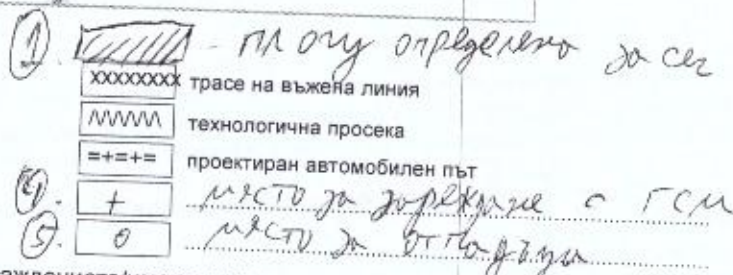 1. - площ определена за сеч
XXXXXXXX трасе на въжена линия
технологична просека
=+=+= проектиран автомобилен път
4. + място за зареждане с ГСМ
5. 0 място за отпадъци